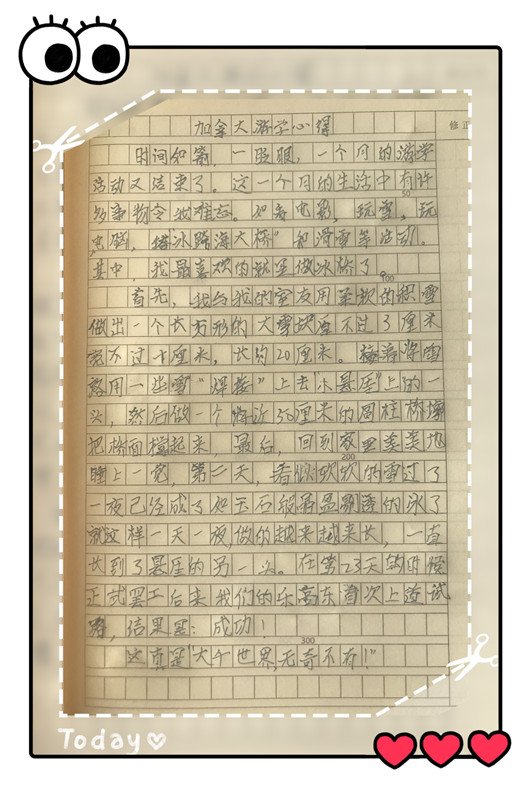 加拿大游学心得
修正
时间如箭，一眨眼，一个月的游学
活动又结束了。这一个月的生活中有许
50
多事物令我难忘。如看电影，玩雪，玩
电脑，搭"冰跨海大桥"和滑雪等活动。
其中，我最喜欢的就是做冰桥了。
100
首先，我与我的室友用柔软的积雪
做出一个长方形的大雪块厚不过3厘米
宽不过十厘米，长约20厘米。接着将雪
用一些雪"焊接"上去"小悬崖"上的一
头，然后做一个将近50厘米的圆柱桥墩
把桥面撑起来，最后，回到家里美美地
睡上一觉，第二天，看似软软的雪过了
200
一夜已经成了如玉石般晶晶剔透的冰了
就这样一天一夜，做的越来越来长，一直
长到了悬崖的另一头。在第23天的时候
正式罢工后来我们的乐高车首次上道试
，结果是：成功！
300
这真是"大千世界，无奇不有！"
Today